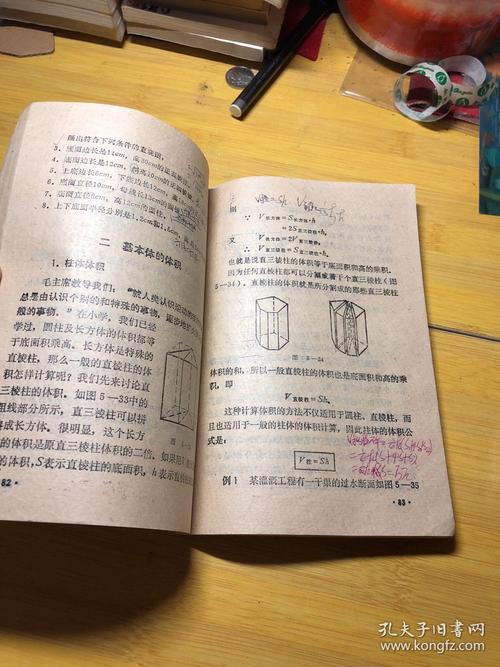 画出符合下列条件的直观图：
3. 底面边长是14cm，高30cm的
4. 底面边长是12cm，
5. 上底边长6cm，下底边长12cm，
6. 底面直径10cm，母线长13cm的
7. 底面直径8cm，高12cm的圆柱。
8. 上下底面半径分别是1.2cm和1.8cm，
二 基本体的体积
1. 柱体体积
毛主席教导我们：“就人类认识运动的
总是由认识个别的和特殊的事物，逐步地扩
般的事物。”在小学，我们已经
学过，圆柱及长方体的体积都等
于底面积乘高。长方体是特殊的
直棱柱，那么一般的直棱柱的体
积怎样计算呢？我们先来讨论直
三棱柱的体积。如图5—33中的
粗线部分所示，直三棱柱可以拼
成长方体。很明显，这个长方
的体积是原直三棱柱体积的二倍。如果用
的体积，S表示直棱柱的底面积，h表示
82·
则
∵ V长方体=S长方体·h
=2S直三棱柱·h，
又 V长方体=2V直三棱柱，
∴ V直三棱柱=S直三棱柱·h。
也就是说直三棱柱的体积等于底面积和高的乘积。
因为任何直棱柱都可以分割成若干个直三棱柱（图
5—34）。直棱柱的体积就是所分割成的那些直三棱柱
图 5—34
体积的和，所以一般直棱柱的体积也是底面积和高的乘
积，即
V直棱柱=Sh。
这种计算体积的方法不仅适用于圆柱、直棱柱，而
且也适用于一般的柱体的体积计算，因此柱体的体积公
式是：
V柱=Sh
例1 某灌溉工程有一干渠的过水断面如图5—35
·83·
孔夫子旧书网
www.kongfz.com